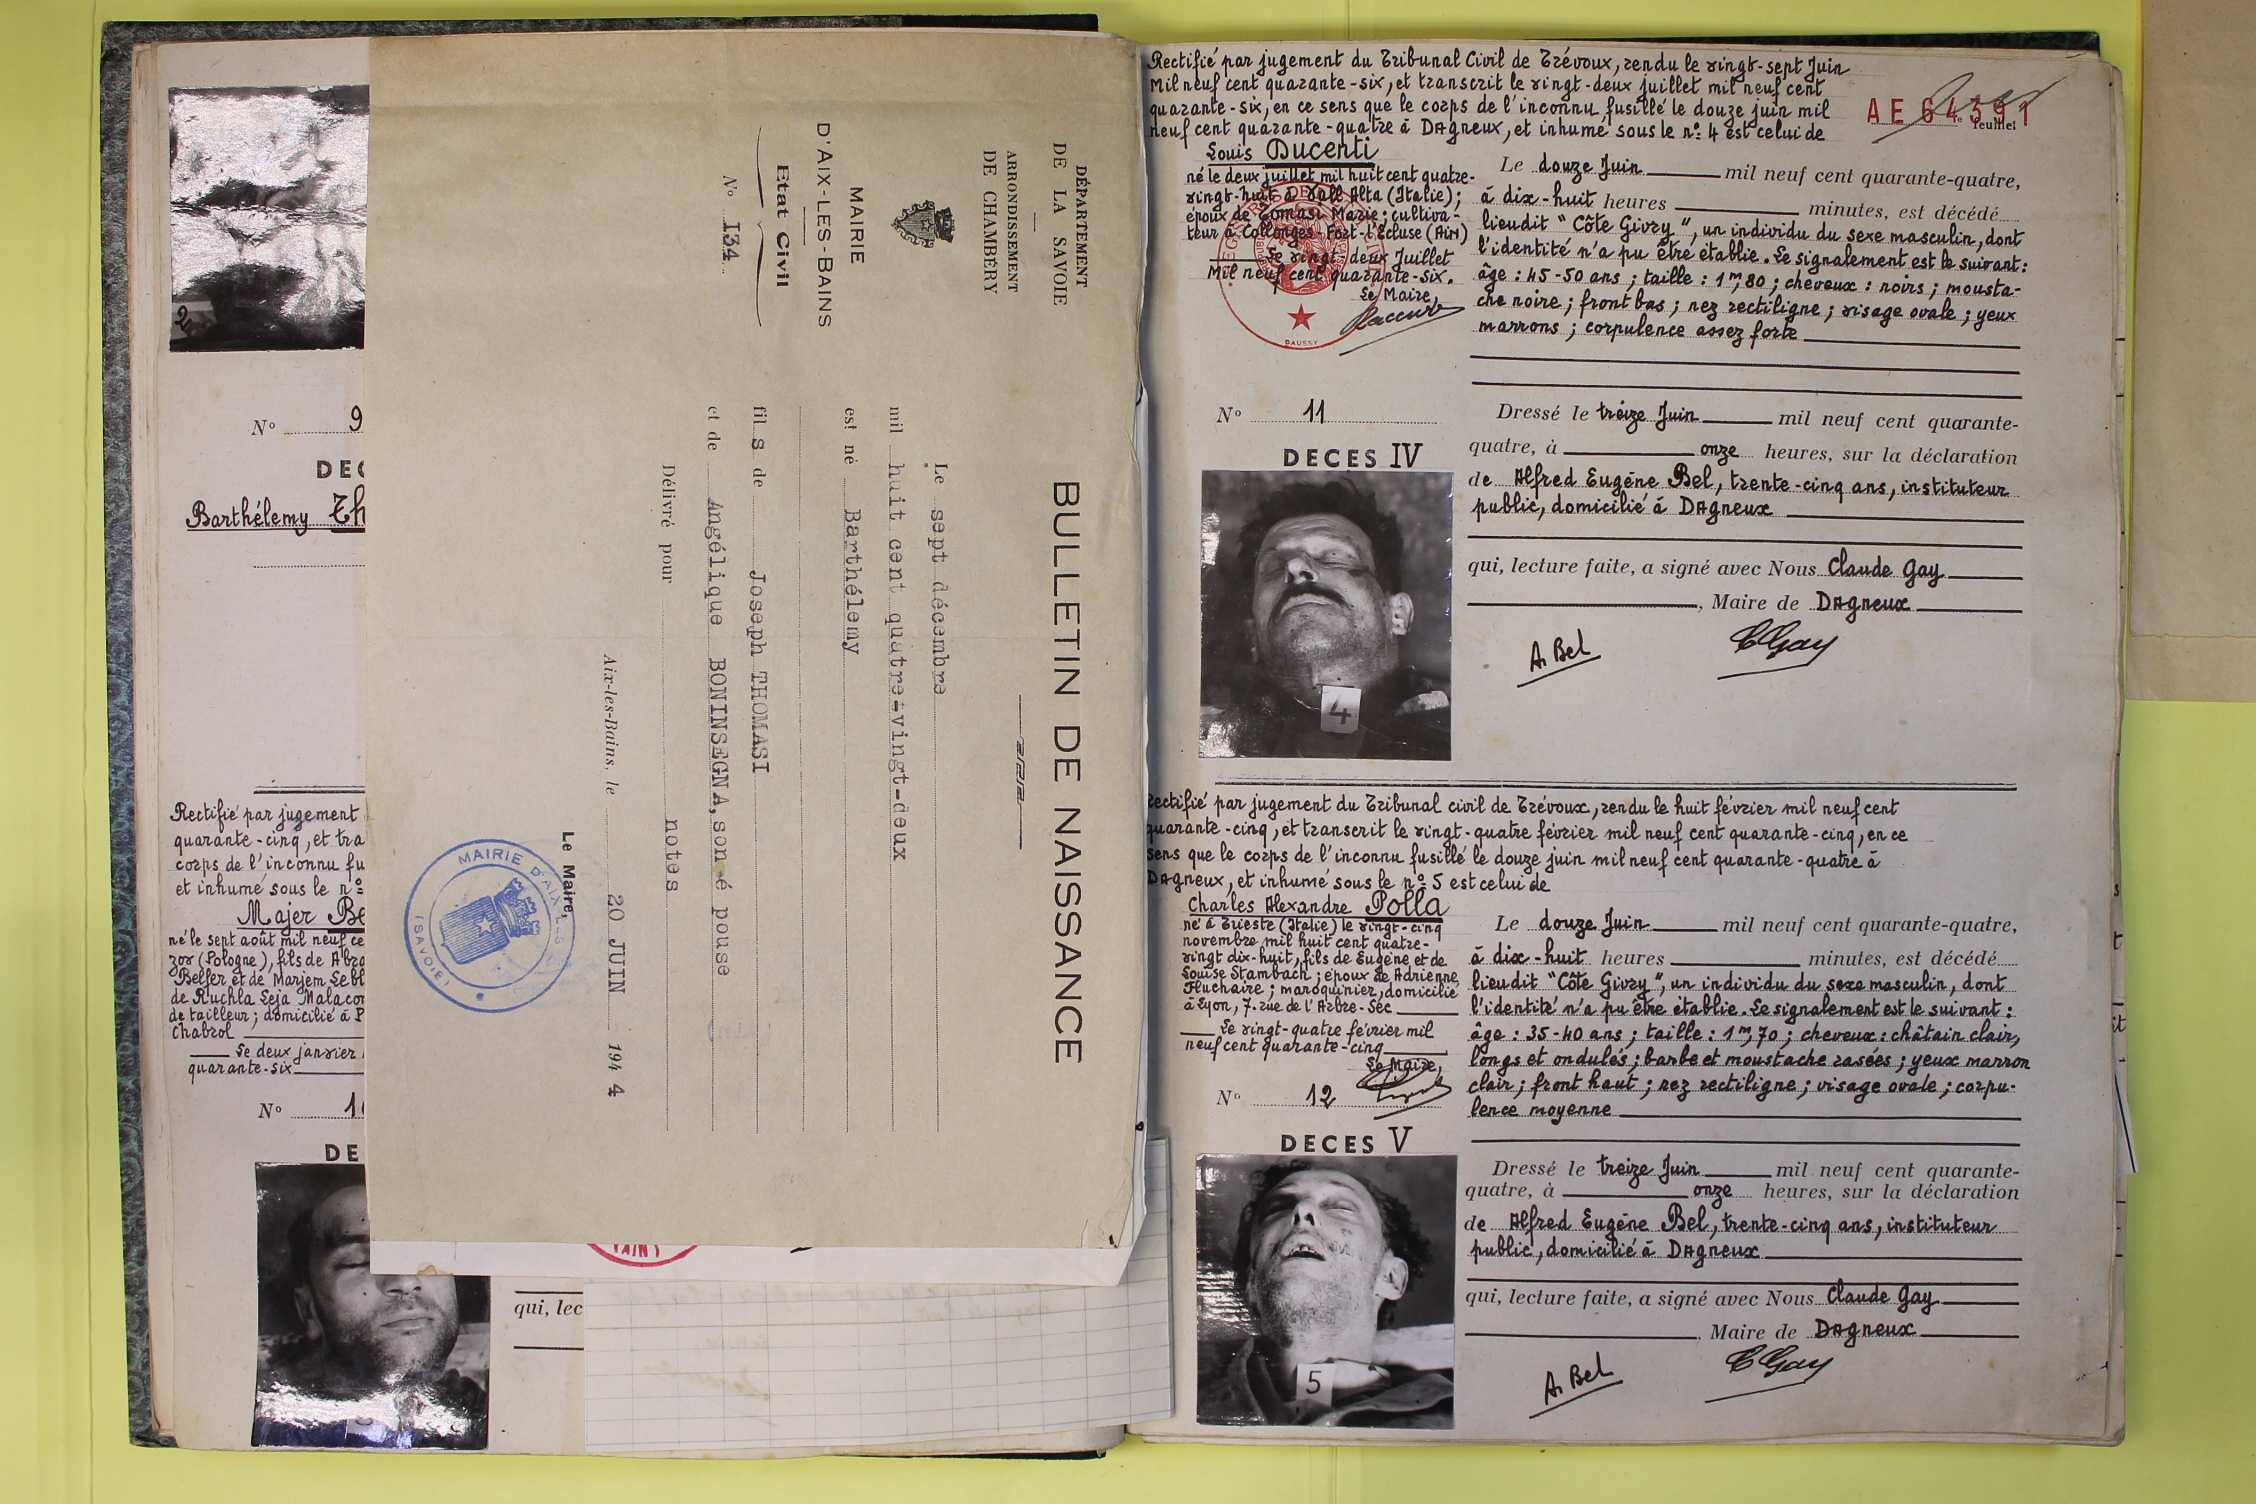 Nº 9
DEC
Barthélemy Th
Rectifié par jugement
quarante-cinq, et tra
corps de l'inconnu fu
et inhumé sous le nº
Majer Be
né le sept août mil neuf ce
zor (Pologne), fils de Abra
Belfer et de Marjem Lebl
de Ruchla Leja Malacor
de tailleur; domicilié à P
Chabrol
Le deux janvier
quarante-six
Nº 1
DE
qui, lec
DÉPARTEMENT
DE LA SAVOIE
ARRONDISSEMENT
DE CHAMBÉRY
MAIRIE
D'AIX-LES-BAINS
Etat Civil
Nº 134
BULLETIN DE NAISSANCE
Le sept décembre
mil huit cent quatre-vingt-deux
est né Barthélemy
fils de Joseph THOMASI
et de Angélique BONINSEGNA, son é pouse
Délivré pour notes
Aix-les-Bains, le 20 JUIN 1944
Le Maire,
MAIRIE D'AIX-LES-B
(SAVOIE)
Rectifié par jugement du Tribunal Civil de Trévoux, rendu le vingt-sept Juin
Mil neuf cent quarante-six, et transcrit le vingt-deux juillet mil neuf cent
quarante-six, en ce sens que le corps de l'inconnu fusillé le douze juin mil
neuf cent quarante-quatre à Dagneux, et inhumé sous le nº 4 est celui de
AE 64391
feuillet
Louis Ducenti
né le deux juillet mil huit cent quatre-
vingt-huit à Vall Alta (Italie);
époux de Tomasi Marie; cultiva-
teur à Collonges-Fort-l'Ecluse (Ain)
Le vingt deux Juillet
Mil neuf cent quarante-six.
Le Maire,
DAUSSY
Nº 11
DECES IV
4
Le douze Juin mil neuf cent quarante-quatre,
à dix-huit heures minutes, est décédé
lieudit "Côte Givry", un individu du sexe masculin, dont
l'identité n'a pu être établie. Le signalement est le suivant:
âge : 45-50 ans ; taille : 1m,80 ; cheveux : noirs ; mousta-
che noire ; front bas ; nez rectiligne ; visage ovale ; yeux
marrons ; corpulence assez forte
Dressé le treize Juin mil neuf cent quarante-
quatre, à onze heures, sur la déclaration
de Alfred Eugéne Bel, trente-cinq ans, instituteur
public, domicilié à Dagneux
qui, lecture faite, a signé avec Nous Claude Gay
, Maire de Dagneux
A. Bel
C Gay
Rectifié par jugement du Tribunal civil de Trévoux, rendu le huit février mil neuf cent
quarante-cinq, et transcrit le vingt-quatre février mil neuf cent quarante-cinq, en ce
sens que le corps de l'inconnu fusillé le douze juin mil neuf cent quarante-quatre à
Dagneux, et inhumé sous le nº 5 est celui de
Charles Alexandre Polla
né à Trieste (Italie) le vingt-cinq
novembre mil huit cent quatre-
vingt dix-huit, fils de Eugène et de
Louise Stambach ; époux de Adrienne
Fluchaire ; maroquinier, domicilié
à Lyon, 7. rue de l'Arbre-Sec
Le vingt-quatre février mil
neuf cent quarante-cinq
Le Maire,
Nº 12
DECES V
5
Le douze Juin mil neuf cent quarante-quatre,
à dix-huit heures minutes, est décédé
lieudit "Côte Givry", un individu du sexe masculin, dont
l'identité n'a pu être établie. Le signalement est le suivant :
âge : 35-40 ans ; taille : 1m,70 ; cheveux : châtain clair,
longs et ondulés ; barbe et moustache rasées ; yeux marron
clair ; front haut ; nez rectiligne ; visage ovale ; corpu-
lence moyenne
Dressé le treize Juin mil neuf cent quarante-
quatre, à onze heures, sur la déclaration
de Alfred Eugéne Bel, trente-cinq ans, instituteur
public, domicilié à Dagneux
qui, lecture faite, a signé avec Nous Claude Gay
, Maire de Dagneux
A. Bel
C Gay